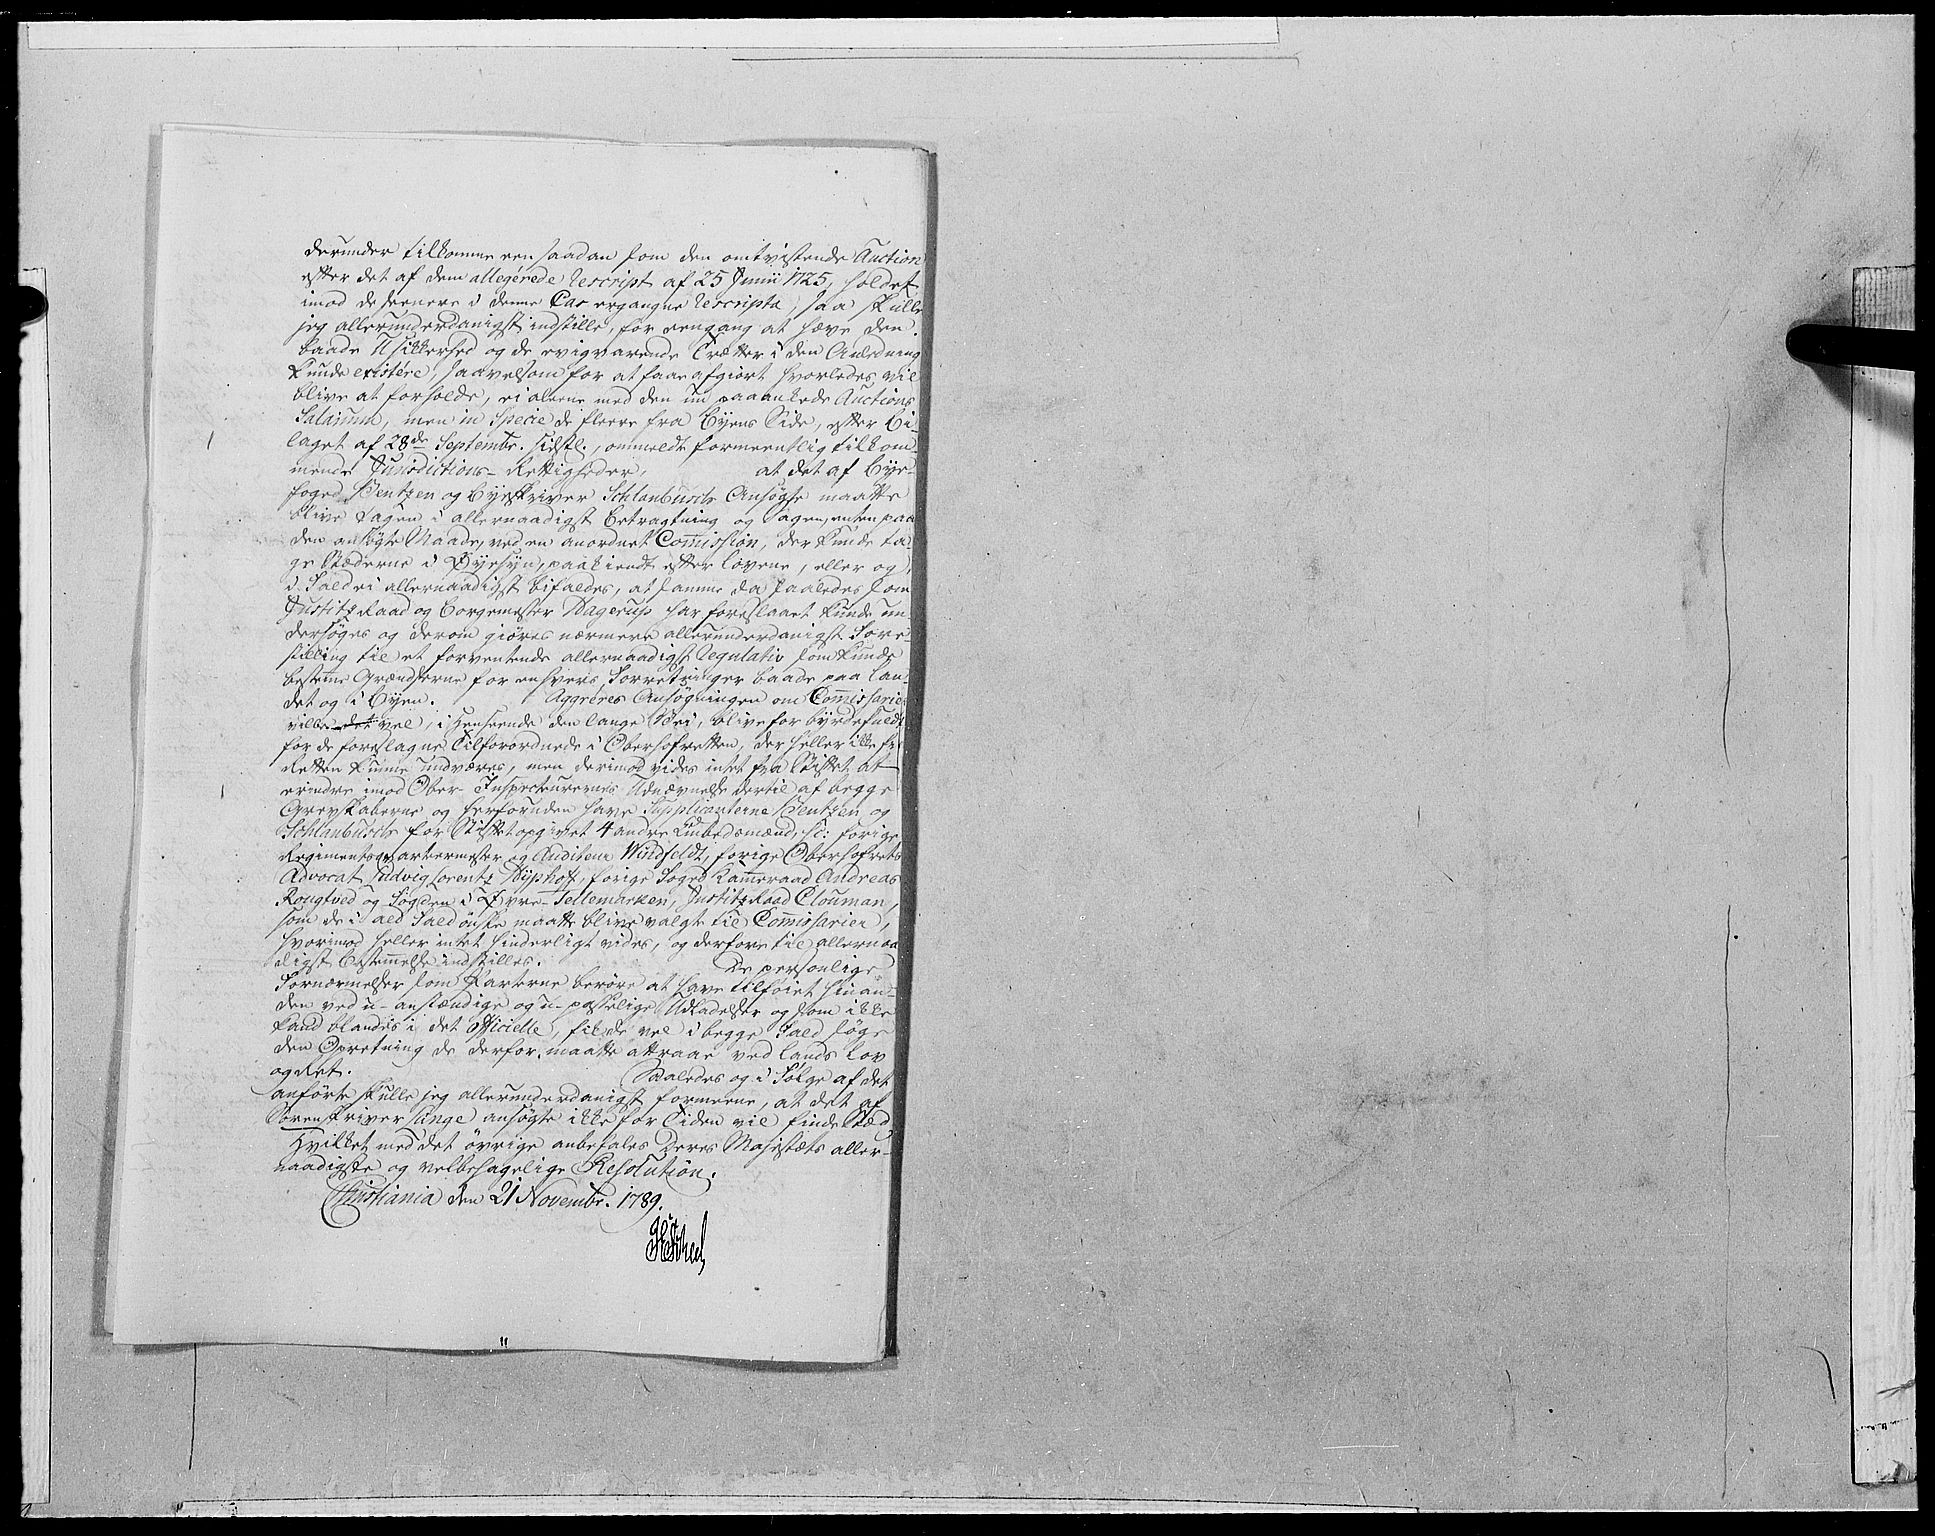 derunder tilkomme een saadan som den omtvistende Auction
efter det af dem allegerede Rescript af 25 Junii 1725, holdet
imod de seenere i denne Cas ergangne Rescripta, saa skulle
jeg allerunderdanigst indstille, for eengang at hæve den
baade Usikkerhed og de evigvarende Trætter i den Anledning
kunde existére, saavelsom for at faae afgiort hvorledes vil
blive at forholde, ei aleene med den nu paaankede Auctions
Salarium, men in Specie de fleere fra Byens Side, efter Bi-
laget af 28de Septembr. sidstl., ommeldte formeentlig tilkom-
mende Jurisdictions-Rettigheder, at det af Bye-
foged Bentzen og Byeskriver Schlanbusch Ansøgte maatte
blive tagen i allernaadigst Betragtning og Sagen, enten paa
den ansøgte Maade, ved en anordnet Commission, der kunde ta-
ge Stæderne i Øyesyn, paakiendt efter Lovene, eller og,
i Fald ei allernaadigst bifaldes, at samme da saaledes som
Justitz Raad og Borgemester Hagerup har foreslaaet kunde un-
dersøges og derom giøres nærmere allerunderdanigst Fore-
stilling til et forventende allernaadigst Regulativ som kunde
bestemme Grændserne for enhvers Forretninger baade paa Lan-
det og i Byen. Aggréres Ansøgningen om Commissarier
ville det vel, i Henseende den lange Vei, blive for byrdefuldt
for de foreslagne Tilforordnede i Oberhofretten, der heller ikke fra
Retten kunne undværes, men derimod vides intet fra Stiftet at
erindre imod Ober-Inspecteurernes Udnævnelse dertil af begge
Grevskaberne og herforuden have Supplicanterne Bentzen og
Schlanbusch for Stiftet opgivet 4 andre Embedsmænd, sc: forige
Regimentsqvarteermester og Auditeur Windfeldt, forige Oberhofrets
Advocat Ludvig Lorentz Dyphof, forige Foged Kammeraad Andreas
Rougtved og Fogden i Øvre-Tellemarken, Justitz Raad Clouman,
som de i ald Fald ønske maatte blive valgt til Commissarier,
hvorimod heller intet hinderligt vides, og derfore til allernaa-
digst Bestemmelse indstilles. De personlige
Fornærmelser som Parterne berøre at have tilføiet hinan-
den ved u-anstændige og u-passelige Udladelser og som ikke
kand blandes i det officielle, fik de vel i begge Fald søge
den Opretning de derfor maatte attraae ved Lands Lov
og Ret. Saaledes og i Følge af det
anførte skulle jeg allerunderdanigst formeene, at det af
Sorenskriver Lange ansøgte ikke for Tiden vil finde Sted
Hvilket med det øvrige anbefales Deres Majestæts aller-
naadigste og velbehagelige Resolution.
Christiania den 21 Novembr. 1789.